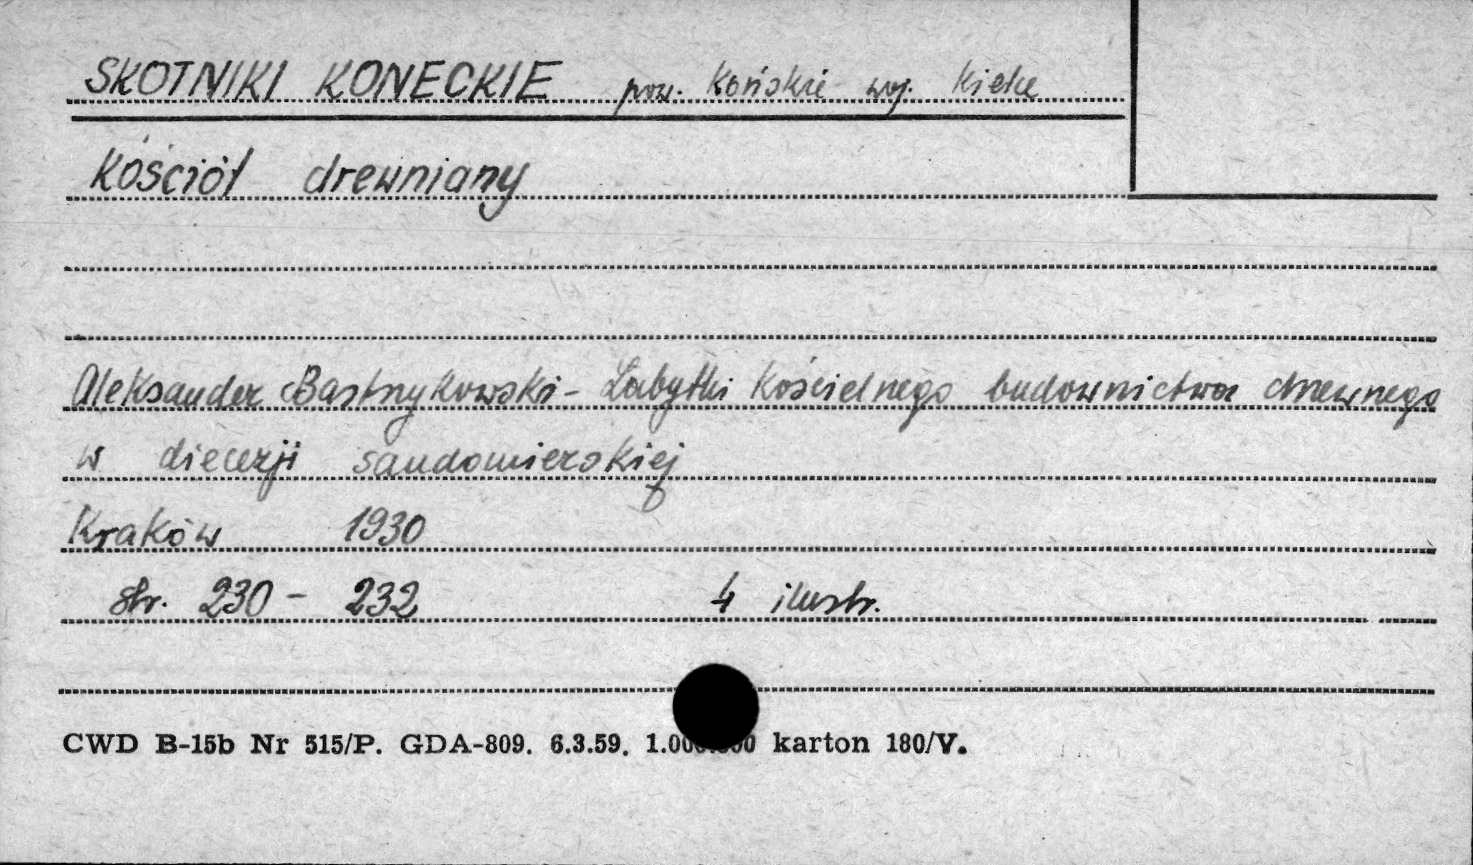 SKOTNIKI KONECKIE pow. Końskie woj. Kielce
Kościół drewniany
Aleksander Bastrzykowski - Zabytki Kościelnego budownictwa drewnego
w diecezji sandomierskiej
Kraków 1930
str. 230 - 232 4 ilustr.
CWD B-15b Nr 515/P. GDA-809. 6.3.59. 1.000.000 karton 180/V.